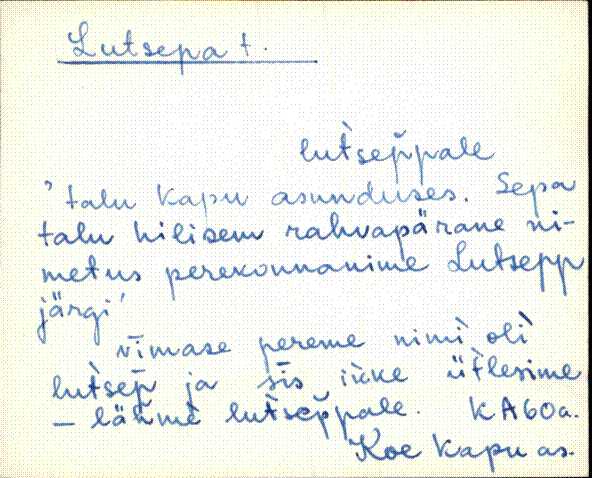 Lutsepa t.
lut̀sep̆pale
'talu Kapu asunduses. Sepa
talu hilisem rahvapärane ni-
metus perekonnanime Lutsepp
järgi'
vīmase pereme nimì olì
lut̀sep̄ ja sīs ikke üt̀lesime
– lähmè lut̀sep̆pale. KA60a.
Koe Kapu as.